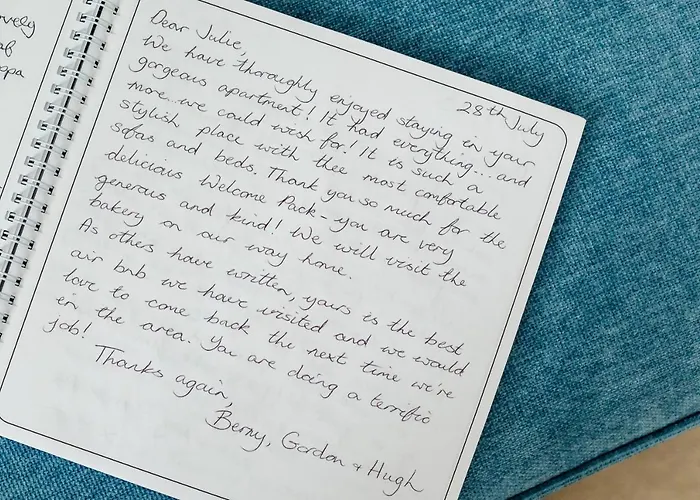 vely
28th July
Dear Julie,
We have thoroughly enjoyed staying in your
gorgeous apartment! It had everything... and
more.. we could wish for! It is such a
stylish place with thee most comfortable
sofas and beds. Thank you so much for the
delicious Welcome Pack - you are very
generous and kind! We will visit the
bakery on our way home.
As others have written, yours is the best
air bnb we have visited and we would
love to come back the next time we're
in the area. You are doing a terrific
job!
Thanks again,
Berny, Gordon & Hugh